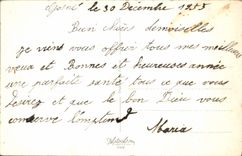 le 30 Décembre 1955
Bien chères demoiselles
je viens vous offrir tous mes meilleurs
vœux et Bonnes et heureuses année
une parfaite santé tous ce que vous
désirez et que le bon Dieu vous
conserve longtemps
Maria